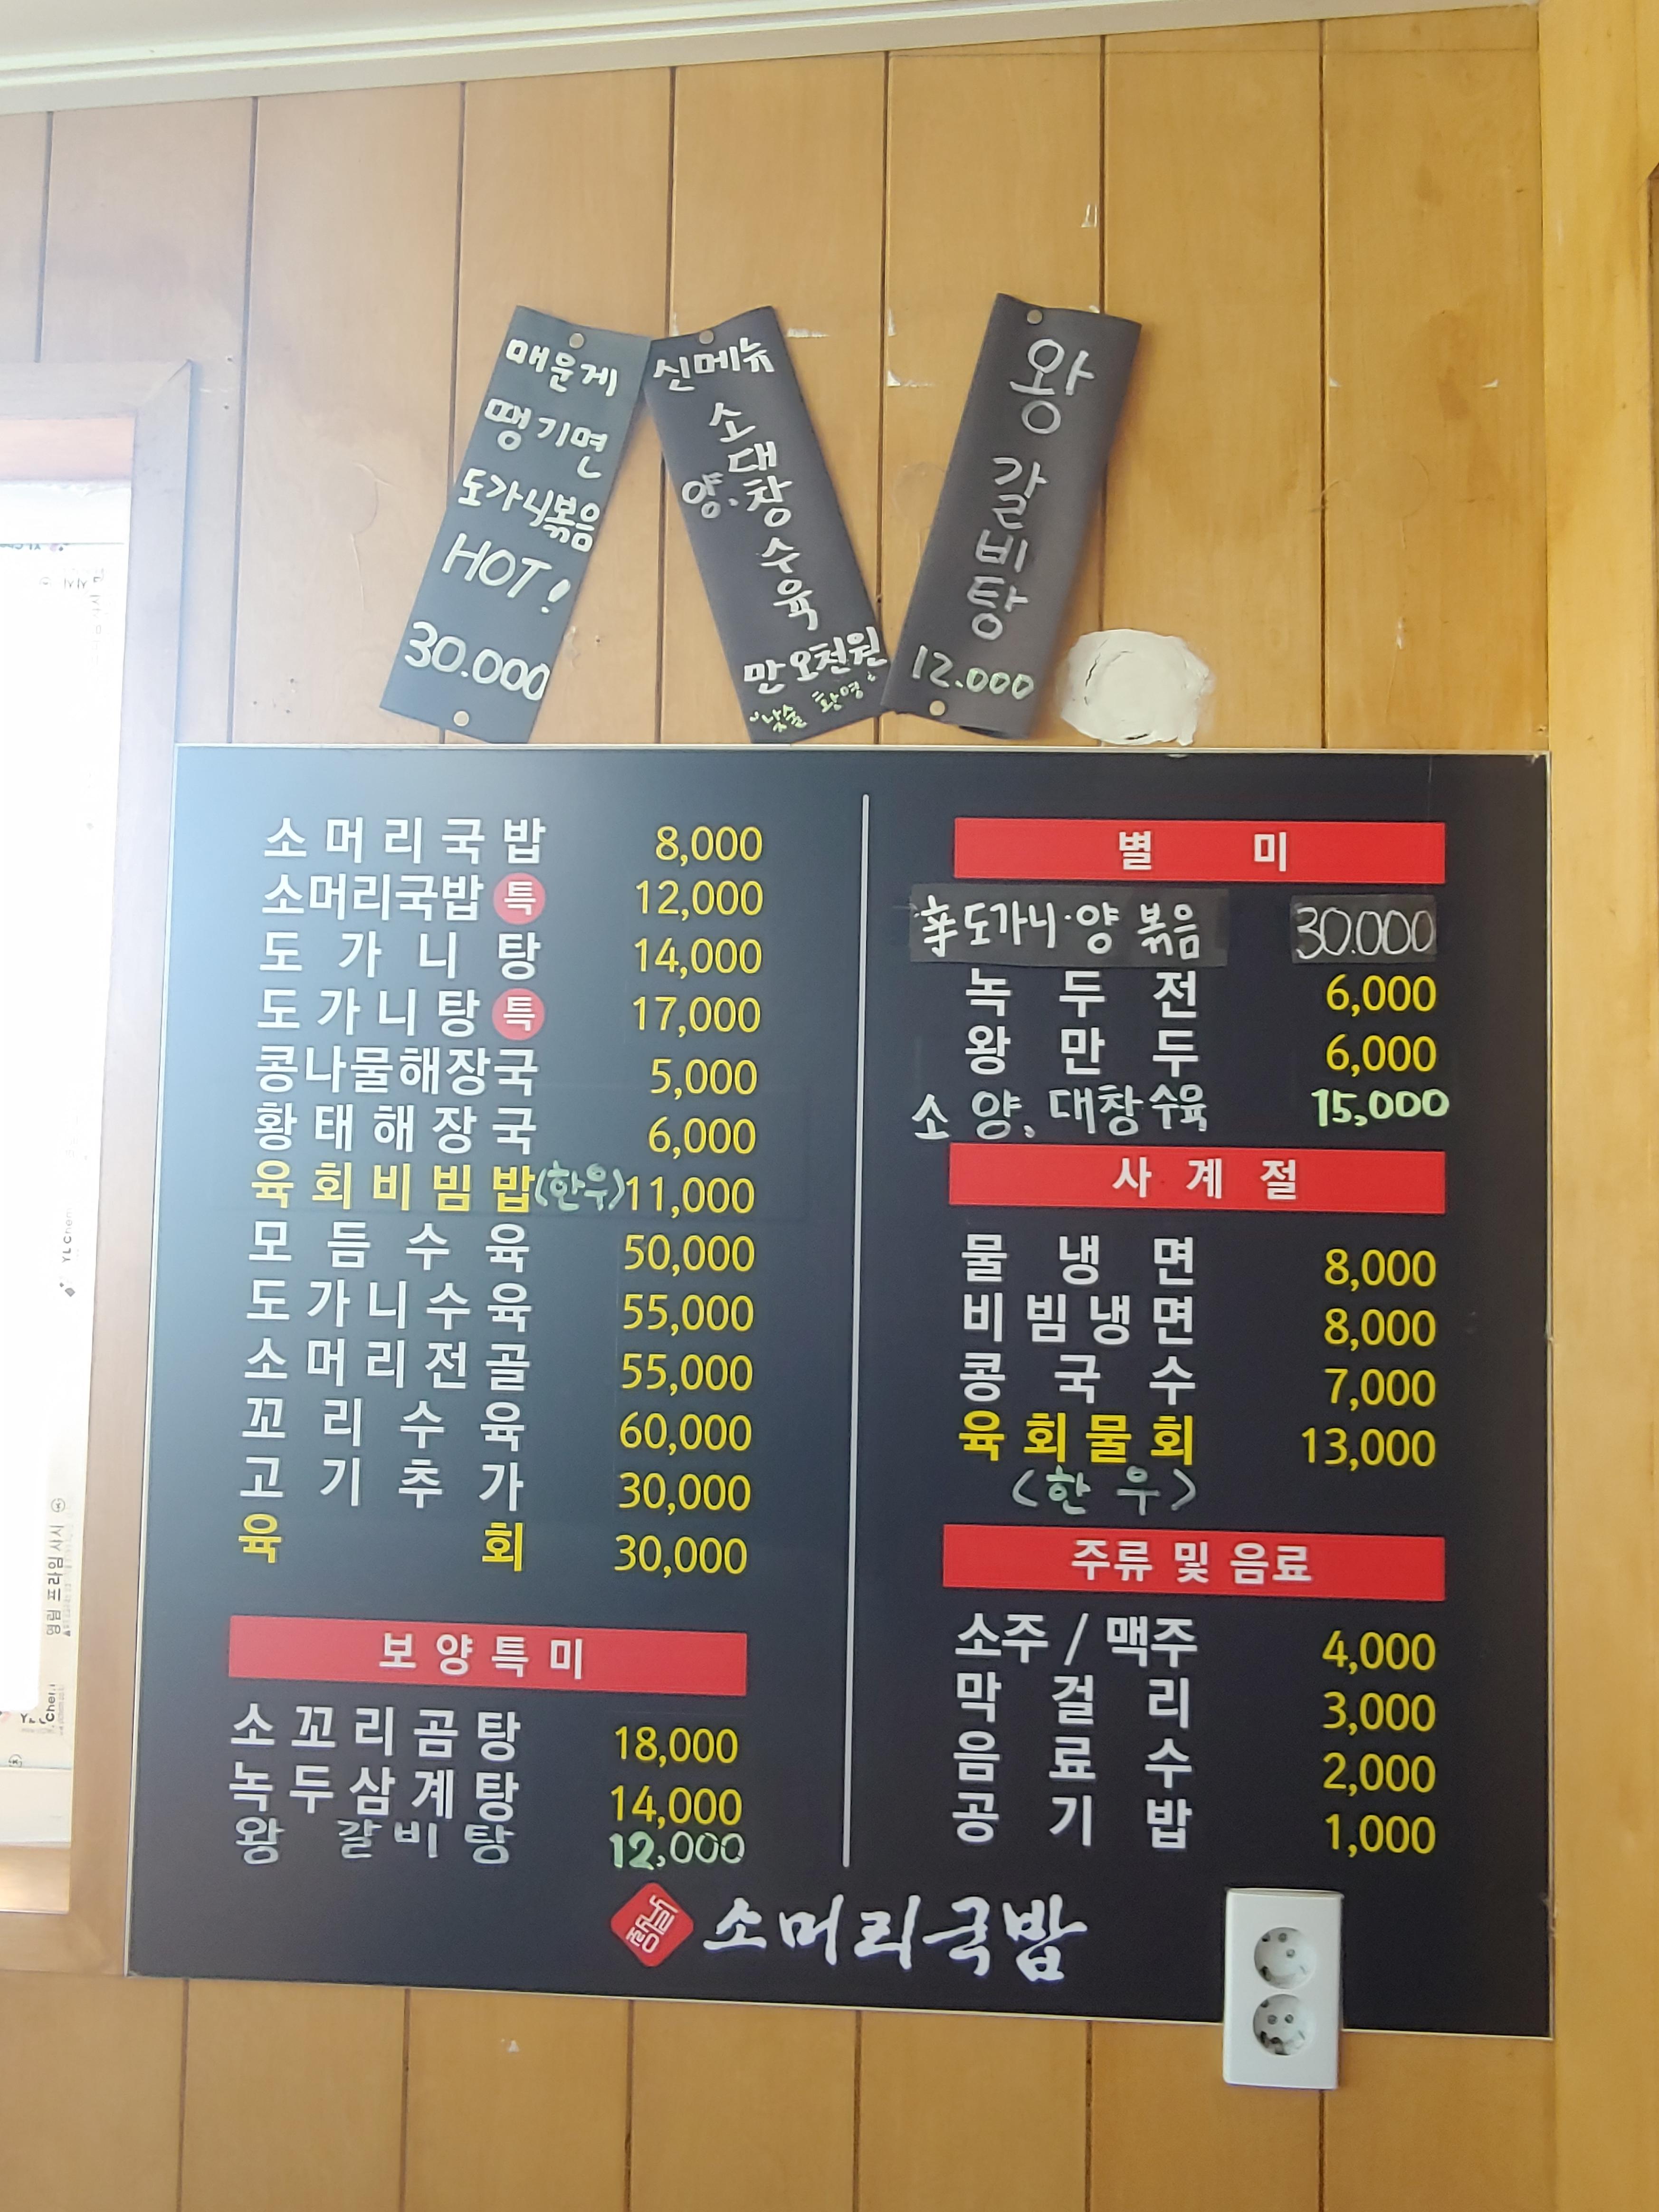 매운게
땡기면
도가니볶음
HOT!
30.000
신메뉴
소대창
양.
수육
만오천원
"낮술 환영"
왕갈비탕
12.000
소머리국밥 8,000
소머리국밥 특 12,000
도가니탕 14,000
도가니탕 특 17,000
콩나물해장국 5,000
황태해장국 6,000
육회비빔밥(한우) 11,000
모듬수육 50,000
도가니수육 55,000
소머리전골 55,000
꼬리수육 60,000
고기추가 30,000
육회 30,000
보양특미
소꼬리곰탕 18,000
녹두삼계탕 14,000
왕 갈비탕 12,000
별미
辛도가니·양 볶음 30.000
녹두전 6,000
왕만두 6,000
소 양, 대창수육 15,000
사계절
물냉면 8,000
비빔냉면 8,000
콩국수 7,000
육회물회 13,000
<한우>
주류 및 음료
소주 / 맥주 4,000
막걸리 3,000
음료수 2,000
공기밥 1,000
소머리국밥
영림 프라임샤시